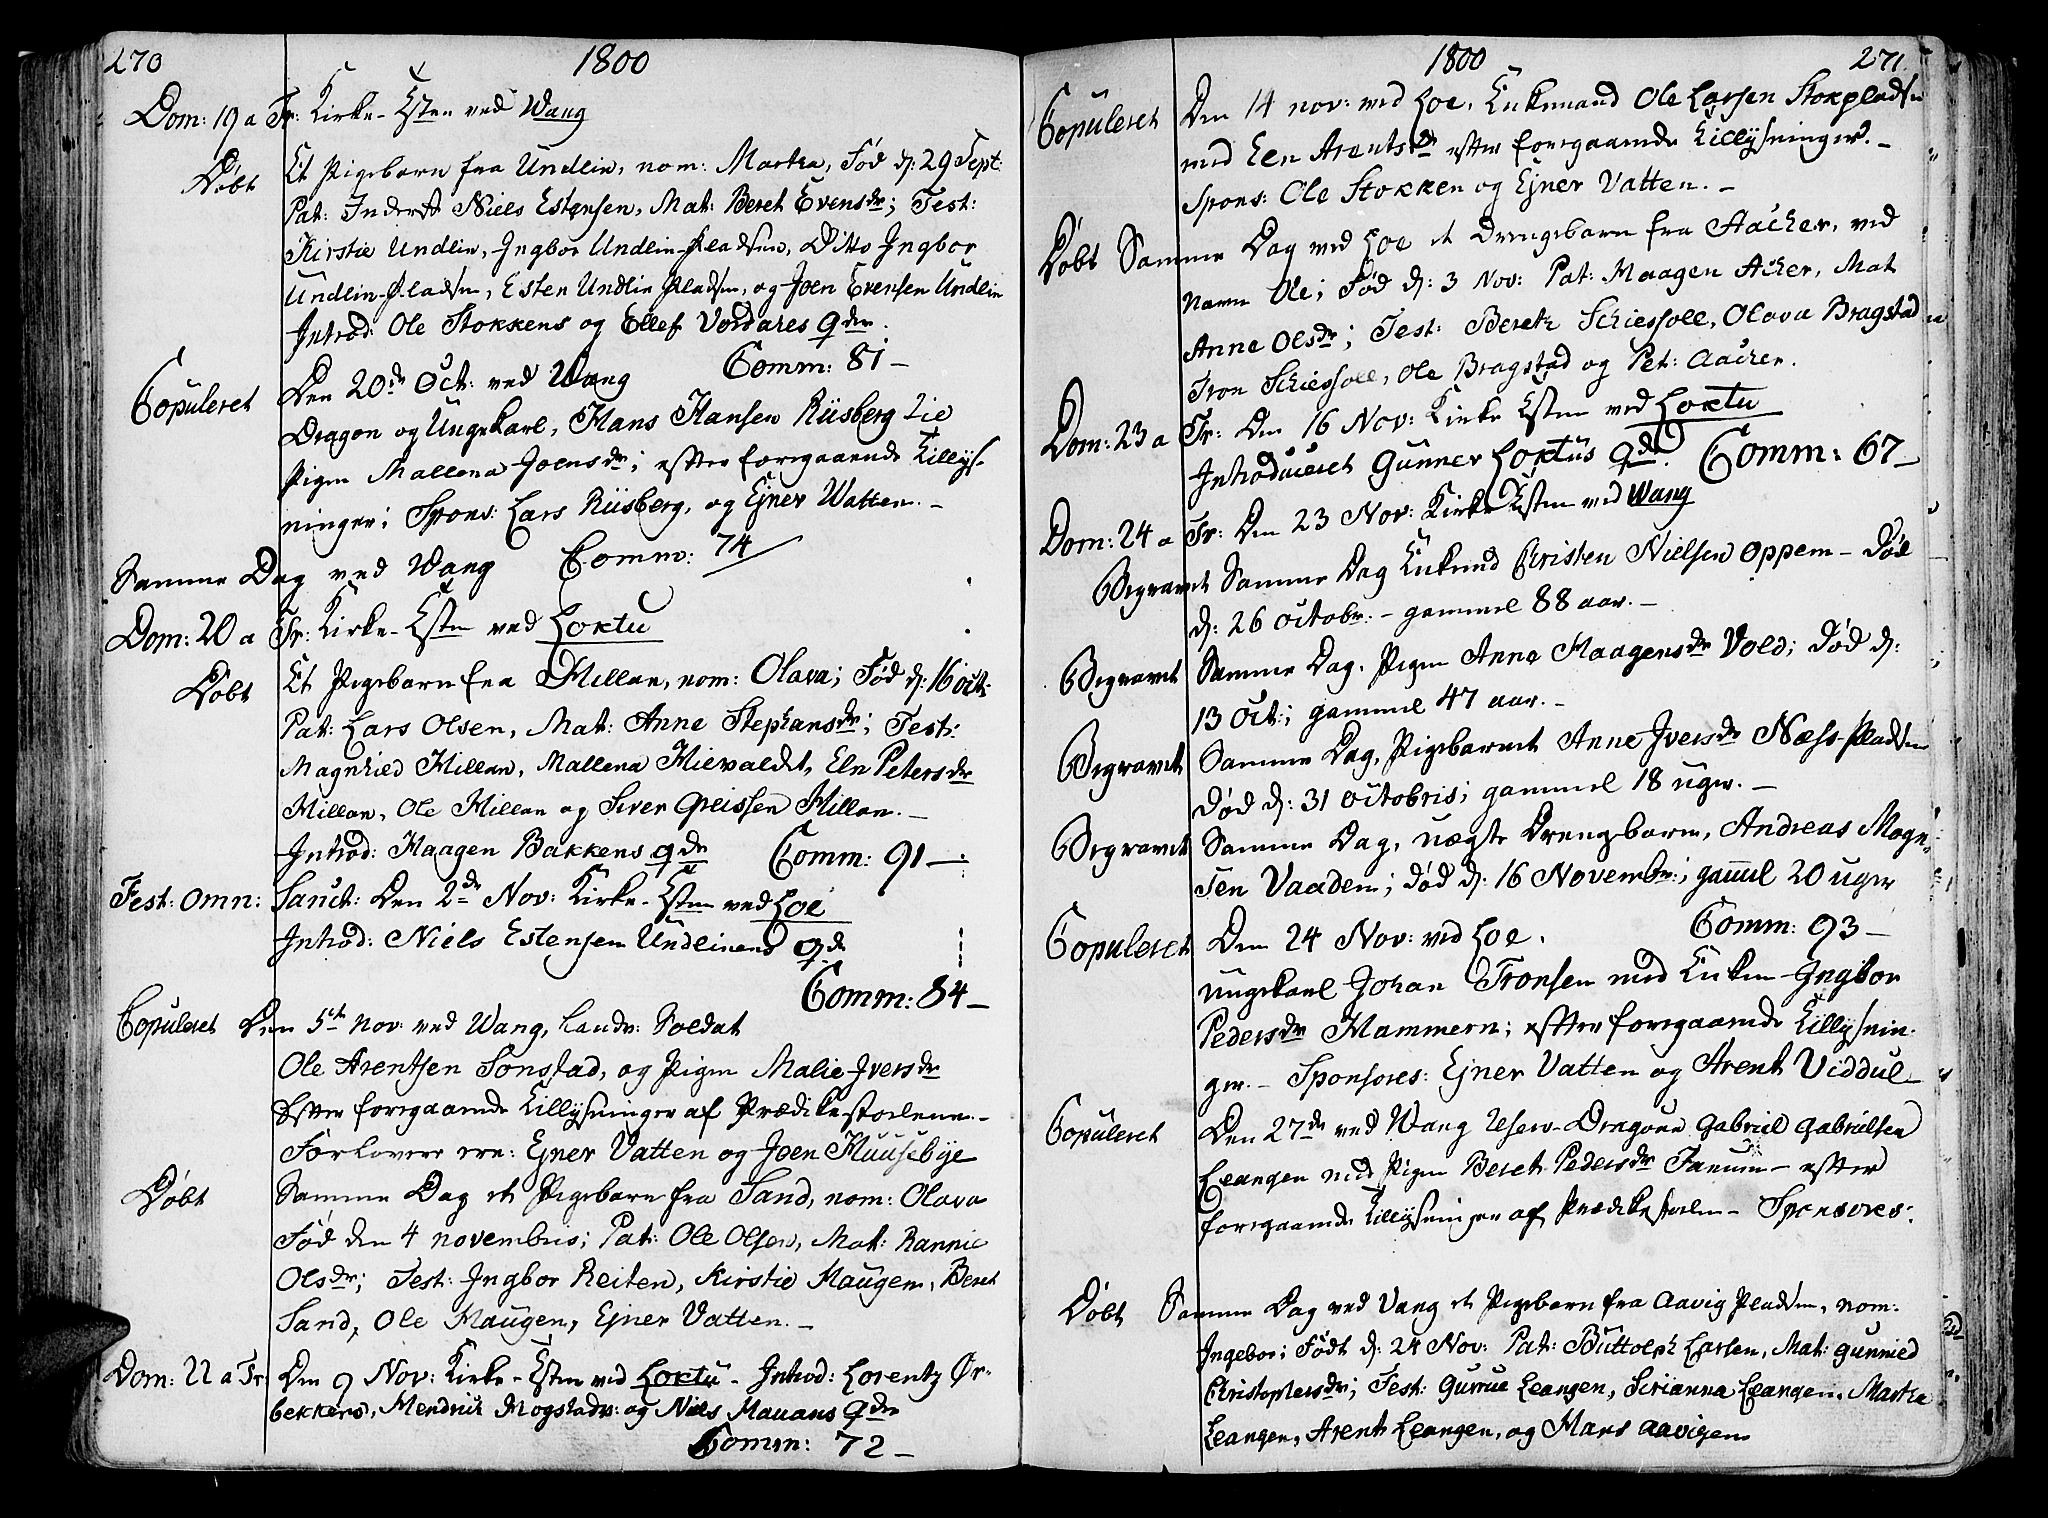 270
1800
Dom: 19 a Tr: Kirke-Esten ved Wang
Døbt Et Pigebarn fra Undlin, nom: Martha, Fød d: 29 Sept:
Pat: Inderst Niels Estensen, Mat: Beret Evensdr; Test:
Kirstie Undlin, Ingbor Undlin-Pladsen, Ditto Ingbor
Undlin-Pladsen, Esten Undlin Pladsen, og Joen Evensen Undlin
Introd: Ole Stokkens og Ellef Vordares qdr.
Comm: 81 –
Copuleret Den 20de Oct: ved Wang
Dragon og Ungekarl, Hans Hansen Riisberg
Pigen Mallena Joensdr; efter foregaaende Tillys-
ninger; Spons: Lars Riisberg, og Ejner Watten. –
Samme Dag ved Wang Comm: 74
Dom: 20 a Tr: Kirke-Esten ved Loxtu
Døbt Et Pigebarn fra Hillan, nom: Olava; Fød d: 16 Oct:
Pat: Lars Olsen, Mat: Anne Stephansdr; Test:
Magnhild Hillan, Mallena Hievaldet, Eln Petersdr
Hillan, Ole Hillan og Siver Greissen Hillan. –
Introd: Haagen Bakkens qdr Comm: 91 –
Fest: Omn: Sanct: Den 2de Nov: Kirke-Esten ved Loe
Introd: Niels Estensen Undlinens qdr
Comm: 84 –
Copuleret Den 5te Nov: ved Wang, Landv: Soldat
Ole Arentsen Sonstad, og Pigen Malie Iversdr
efter foregaaende Tillysninger af Prædikestoelene. –
Forlovere ere: Ejner Vatten og Joen Huusebye
Døbt Samme Dag et Pigebarn fra Sand, nom: Olava
Fød den 4 novembris; Pat: Ole Olsen, Mat: Rannie
Olsdr; Test: Ingbor Reiten, Kirstie Haugen, Beret
Sand, Ole Haugen, Ejner Vatten. –
Dom: 22 a Tr Den 9 Nov: Kirke-Esten ved Loxtu – Introd: Lorentz Ør-
bekkers, Hendrich Mogstads og Niels Hauans qdr
Comm: 72 –
1800
271
Copuleret Den 14 nov: ved Loe, Enkemand Ole Larsen Stokpladsen
med Elen Arentsdr efter foregaaende Tillysninger. –
Spons: Ole Stokken og Ejner Vatten. –
Døbt Samme Dag ved Loe et Drengebarn fra Aacher, ved
Navn Ole; Fød d: 3 Nov: Pat: Haagen Acher, Mat
Anne Olsdr; Test: Bereth Schiessoll, Olava Bragstad
Tron Schiessoll, Ole Bragstad og Pet: Aacher.
Dom: 23 a Tr: Den 16 Nov: Kirke Esten ved Loxtu
Introduceret Gunner Loxtus qdr. Comm: 67 –
Dom: 24 a Tr: Den 23 Nov: Kirke Esten ved Wang
Begravet Samme Dag Christen Nielsen Oppem – død
d: 26 octobr: – gammel 88 aar. –
Begravet Samme Dag, Pigen Anne Haagensdr Vold; død d:
13 Oct:; gammel 47 aar. –
Begravet Samme Dag, Pigebarnet Anne Iversdr Næss-Pladsen
død d: 31 octobris; gammel 18 uger. –
Begravet Samme Dag, uægte Drengebarn, Andreas Mogn-
sen Vaaden; død d: 16 Novembr:; gammel 20 uger
Comm: 93 –
Copuleret Den 24 Nov: ved Loe.
ungekarl Johan Tronsen med Enken Ingbor
Pedersdr Hammern; efter foregaaende Tillysnin-
ger. – Sponsores: Ejner Vatten og Arent Viddul –
Copuleret Den 27de ved Wang Reserv-Dragoun Gabriel Gabrielsen
Leangen med Pigen Beret Pedersdr Fanum – efter
foregaaende Tillysninger af Prædikestolen – Sponsores:
Døbt Samme Dag ved Vang et Pigebarn fra Aavig Pladsen, nom:
Ingebor; Født d: 24 Nov: Pat: Buttolph Larsen, Mat: Gunnild
Christophersdr; Test: Gurrue Leangen, Serianna Leangen, Martha
Leangen, Arent Leangen, og Hans Aavigen